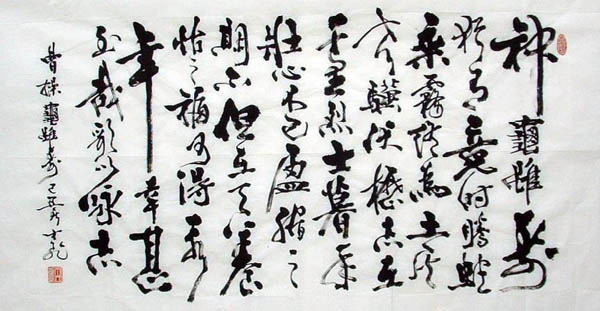 神龜雖壽
猶有竟時騰蛇
乘霧終為土灰
老驥伏櫪志在
千里烈士暮年
壯心不已盈縮之
期不但在天養
怡之福可得永
年幸甚
至哉歌以詠志
曹操龜雖壽 己丑